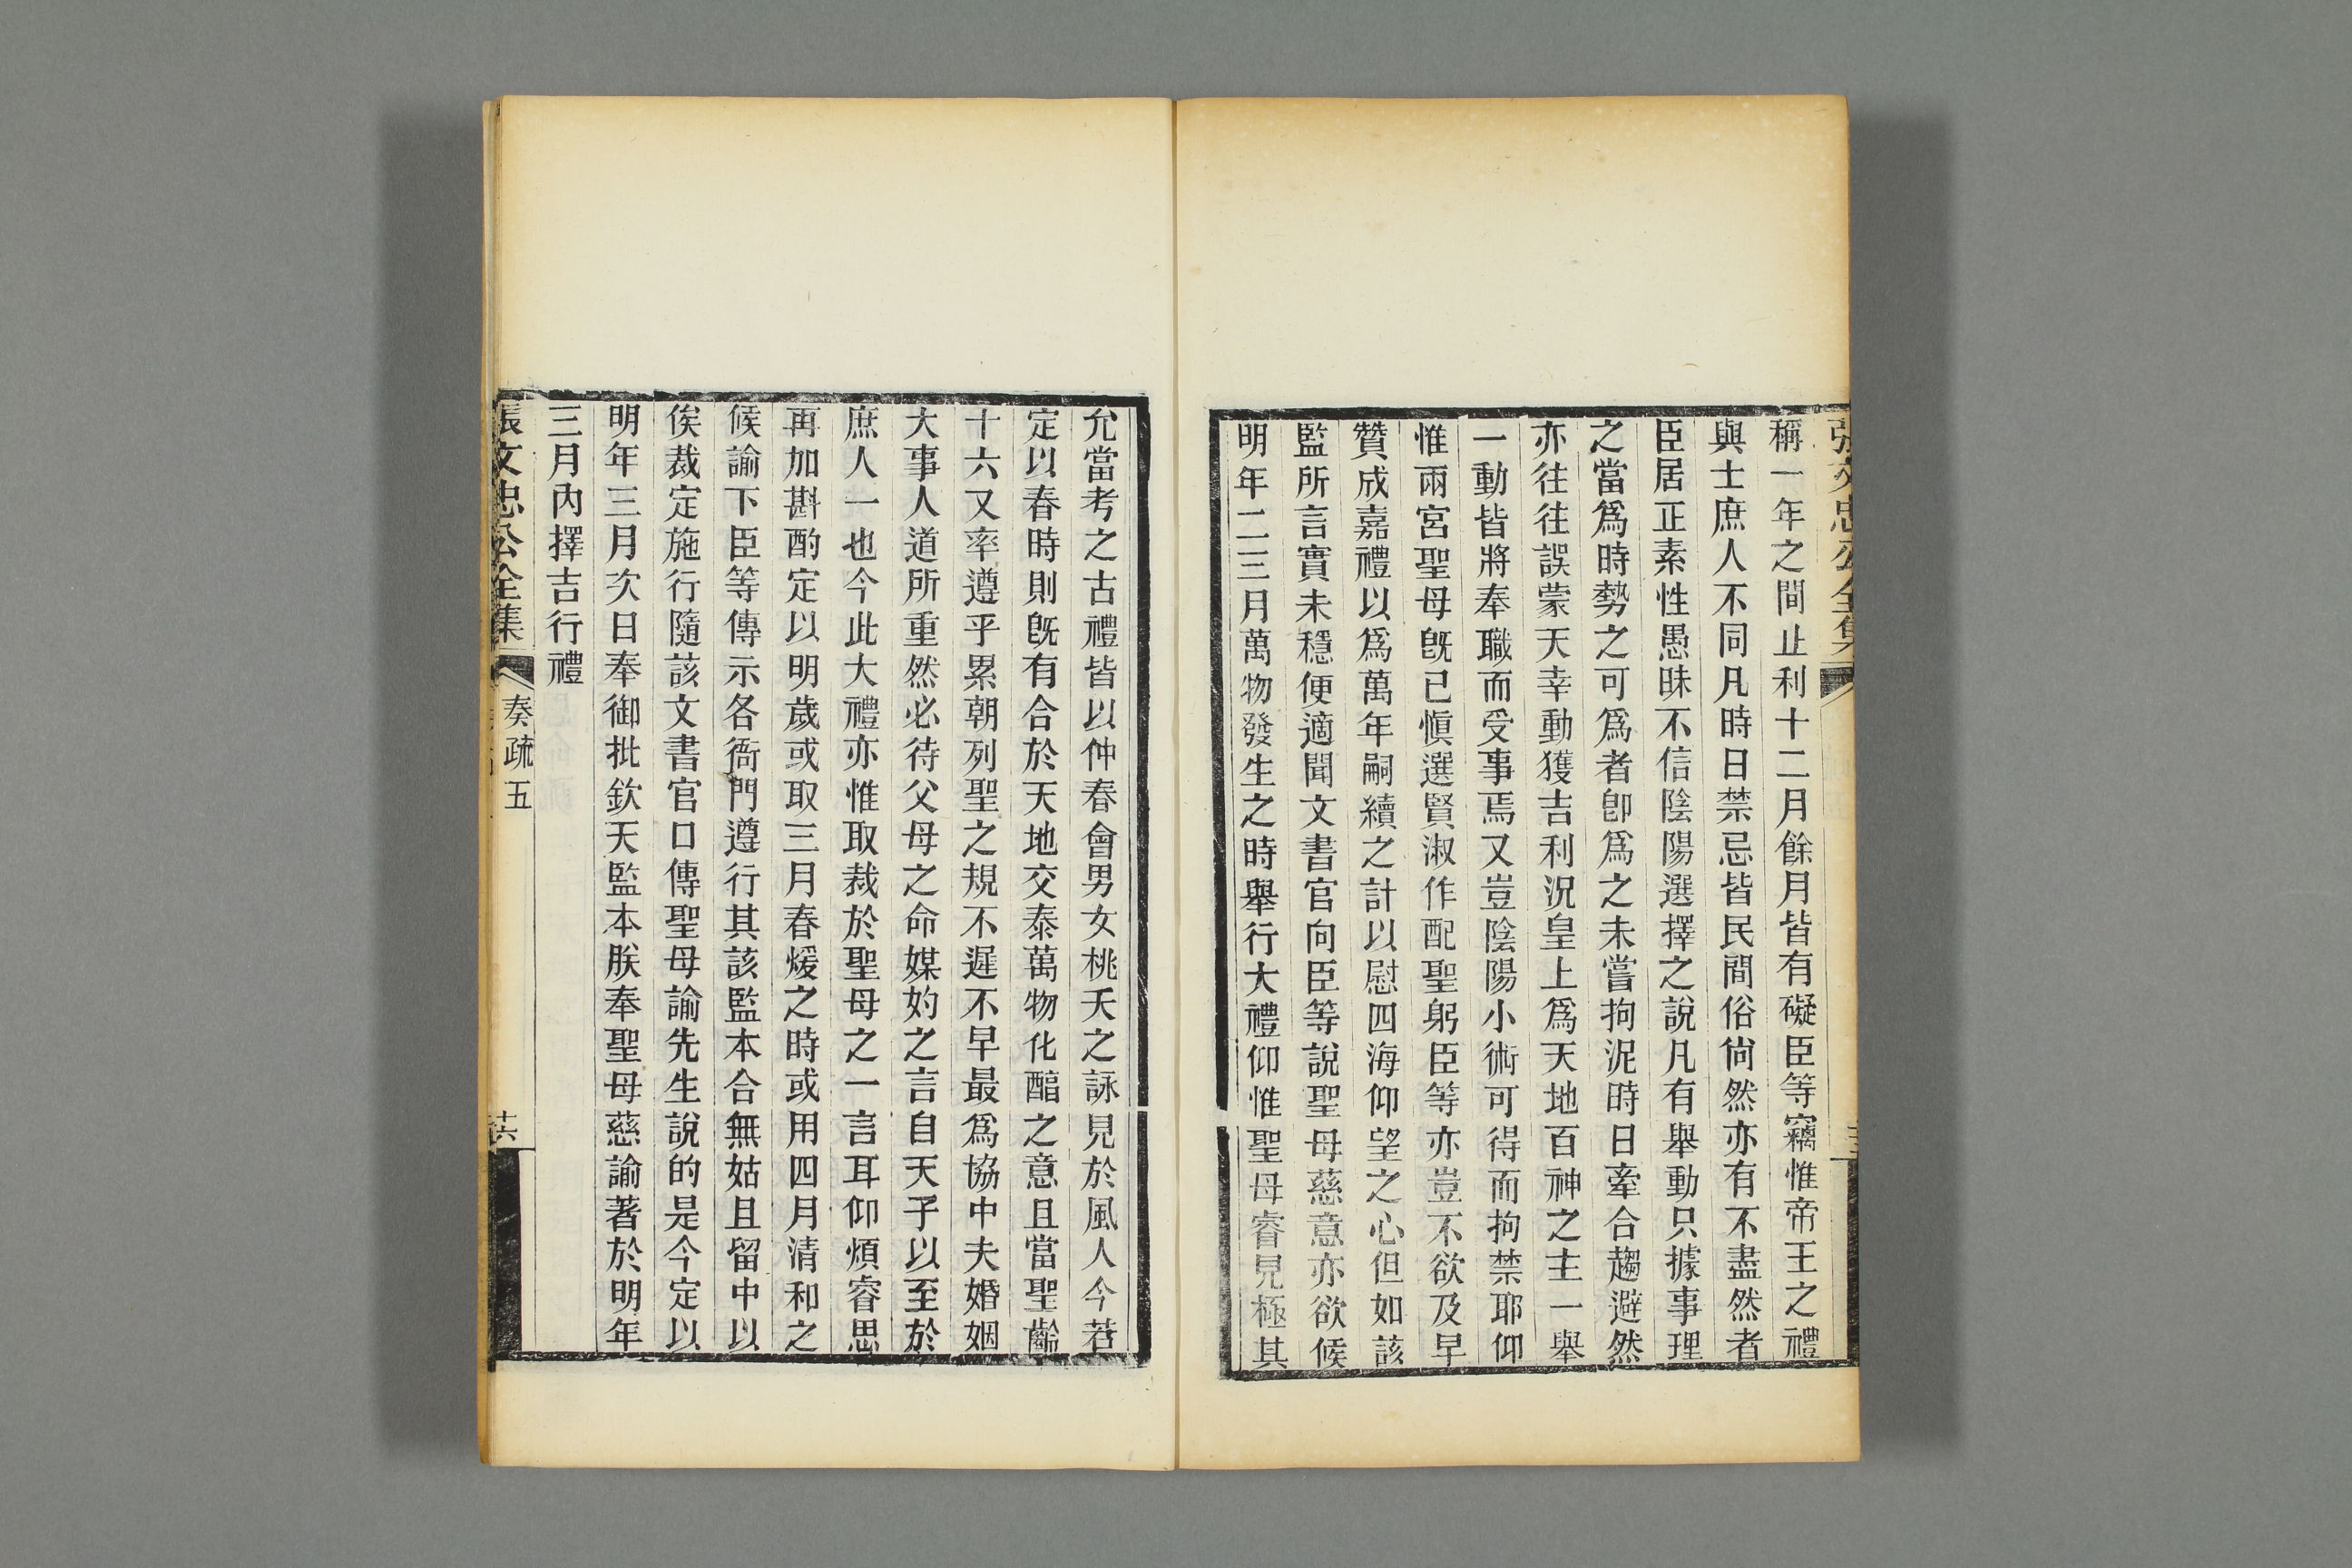 張文忠公全集
稱一年之間止利十二月餘月皆有礙臣等竊惟帝王之禮
與士庶人不同凡時日禁忌皆民間俗尙然亦有不盡然者
臣居正素性愚昧不信陰陽選擇之說凡有舉動只據事理
之當爲時勢之可爲者卽爲之未嘗拘泥時日牽合趨避然
亦往往誤蒙天幸動獲吉利況皇上爲天地百神之主一舉
一動皆將奉職而受事焉又豈陰陽小術可得而拘禁耶仰
惟兩宮聖母旣已愼選賢淑作配聖躬臣等亦豈不欲及早
贊成嘉禮以爲萬年嗣續之計以慰四海仰望之心但如該
監所言實未穩便適聞文書官向臣等說聖母慈意亦欲候
明年二三月萬物發生之時舉行大禮仰惟聖母睿見極其
允當考之古禮皆以仲春會男女桃夭之詠見於風人今若
定以春時則旣有合於天地交泰萬物化醕之意且當聖齡
十六又率遵乎累朝列聖之規不遲不早最爲協中夫婚姻
大事人道所重然必待父母之命媒妁之言自天子以至於
庶人一也今此大禮亦惟取裁於聖母之一言耳仰煩睿思
再加斟酌定以明歲或取三月春煖之時或用四月清和之
候諭下臣等傳示各衙門遵行其該監本合無姑且留中以
俟裁定施行隨該文書官口傳聖母諭先生說的是今定以
明年三月次日奉御批欽天監本朕奉聖母慈諭著於明年
三月內擇吉行禮
張文忠公全集 奏疏五 十六